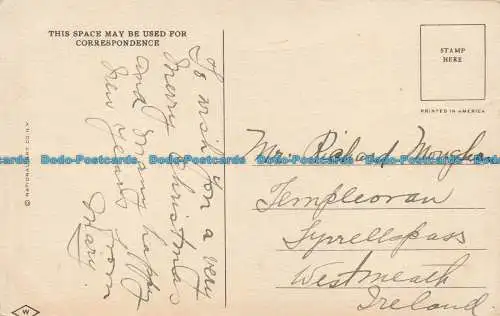 THIS SPACE MAY BE USED FOR
CORRESPONDENCE
To wish you a very
Merry Christmas
and many happy
New Years from
Mary.
STAMP
HERE
PRINTED IN AMERICA
Mr. Richard
Templeoran
Tyrrellspass
Westmeath
Ireland.
Dodo-Postcards Dodo-Postcards Dodo-Postcards Dodo-Postcards
© NATIONAL ART CO. N.Y.
W